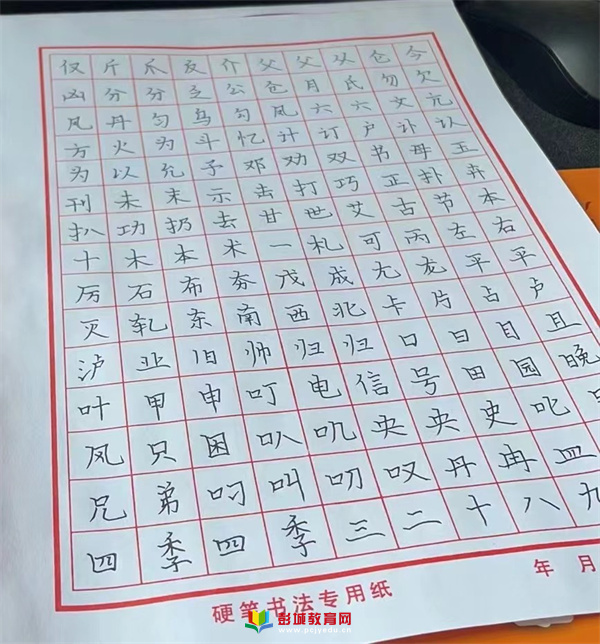 仅斤爪反介父父从仓今
凶分分乏公仓月氏勿欠
凡丹匀乌勾凤六六文亢
方火为斗忆计订户讣认
为以允予邓劝双书毋玉
刊未末示击打巧正扑卉
扒功扔去甘世艾古节本
十木本术一札可丙左右
厉石布夯戊成尢龙平平
灭轧东南西北卡片占卢
泸业旧帅归归口曰目且
叶甲申叮电信号田园晚
风只困叭叽央央史叱
兄弟叼叫叨叹丹冉皿
四季四季三二十八九
硬笔书法专用纸
年 月
彭城教育网
www.pcjyxdn.cn